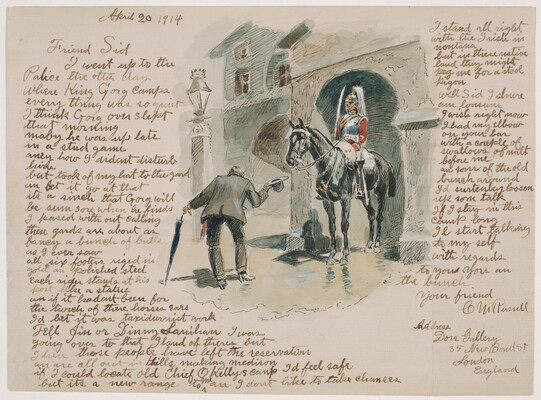 April 20 1914
Friend Sid
I went up to the
Palice the other day
where King Gorg camps
every thing was so quiet
I think Gorg over slept
that morning
maby he was up late
in a stud game
aney how I dident disturb
him
but took of my hat to the gard
an let it go at that
its a sinch that Gorg will
be sore when he finds
I passed with out calling
these gards are about as
fancy a bunch of bulls
as I ever saw
all six footers riged in
gold an polished steel
Each rider stands at his
post like a statue
an if it hadent been for
the twich of there horses ears
I'd bet it was taxidermist work
Tell Jim or Dinny Lanihan I was
going over to that Iland of theres but
I hear those people have left the reservation
an are all out in hills making medison
if I could locate old Chief O Kellys camp I'd feel safe
but its a new range to me an I dont like to take chances
I stand all right
with the Irish in
montana
but in there native
land they might
peg me for a stool
pigon
Well Sid I shure
am lonsum
I wish right now
I had my elbow
on your bar
with a couple of
swallows of
before me
an som of the old
bunch around
I'd surtenly loosen
up som talk
If I stay in this
camp long
I'l start talking
to my self
with regards
to yours an
the bunch
Your friend
C M Russell
Address
Dore Gallery
35 New Bond St
London
England